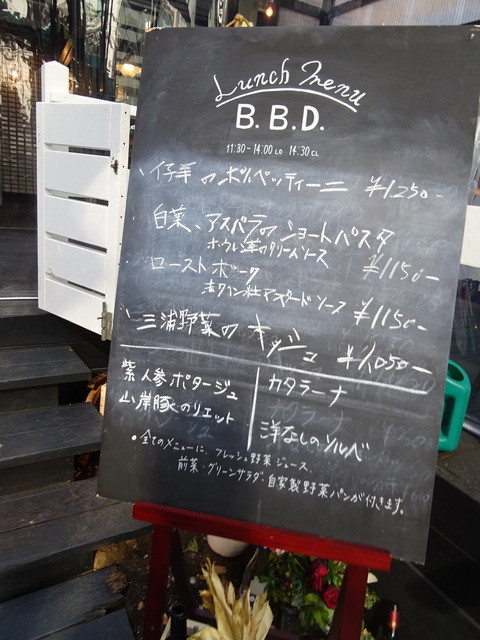 Lunch Menu
B.B.D.
11:30-14:00 LO 14:30 CL
仔羊のポルペッティーニ ¥1,250-
白菜、アスパラのショートパスタ
ホウレン草のクリームソース ¥1150-
ローストポーク
赤ワインマスタードソース ¥1150-
三浦野菜のキッシュ ¥1,050-
紫人参ポタージュ
山岸豚のリエット
カタラーナ
洋なしのソルベ
•全てのメニューに、フレッシュ野菜ジュース、
前菜・グリーンサラダ・自家製野菜パンが付きます。